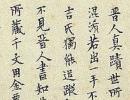 晉人真蹟世所
混淆若出一手不
吉氏獨能追蹤
不見晉人書知
所藏千文用金粟